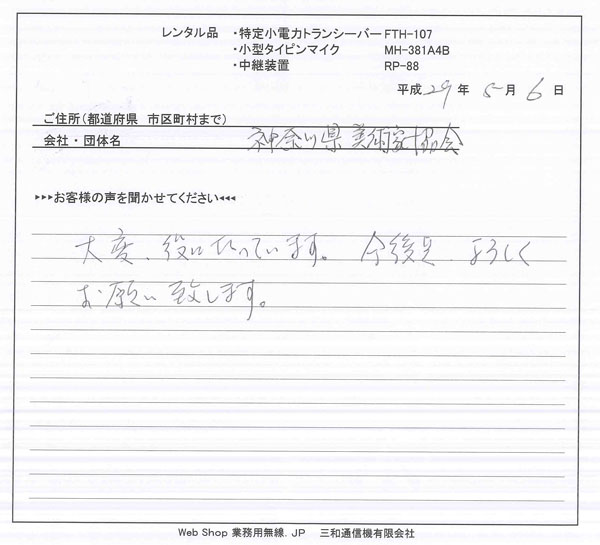 レンタル品 ・特定小電力トランシーバー FTH-107
・小型タイピンマイク MH-381A4B
・中継装置 RP-88
平成 29 年 5 月 6 日
ご住所(都道府県 市区町村まで)
会社・団体名 神奈川県美術家協会
▸▸▸お客様の声を聞かせてください◂◂◂
大変、役に立っています。 今後是、よろしく
お願い致します。
Web Shop 業務用無線.JP 三和通信機有限会社